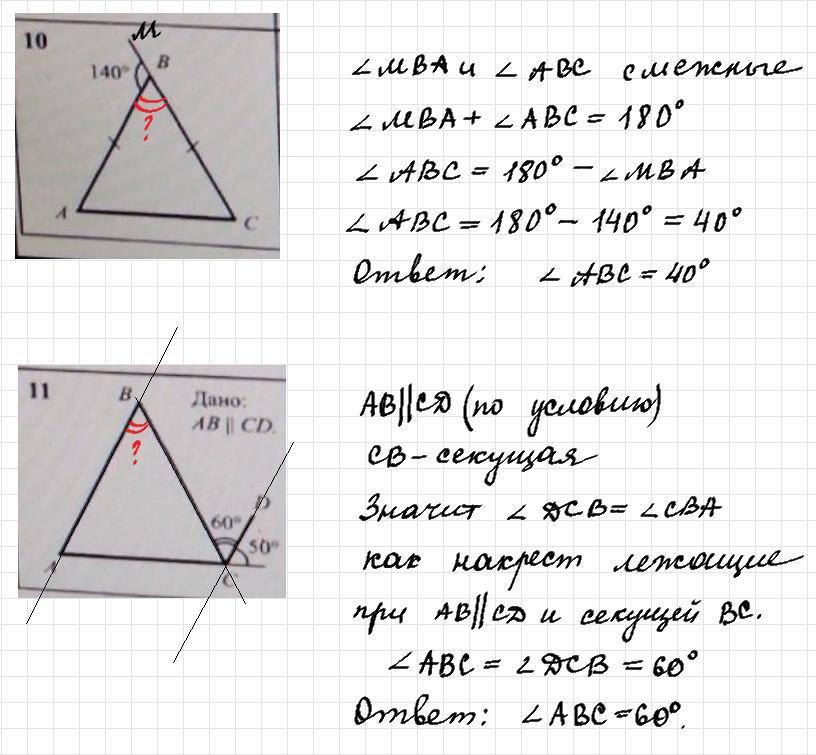 10
M
B
140°
?
A
C
∠MBA и ∠ABC смежные
∠MBA + ∠ABC = 180°
∠ABC = 180° − ∠MBA
∠ABC = 180° − 140° = 40°
Ответ: ∠ABC = 40°
11
B
Дано:
AB || CD.
?
D
60°
50°
A
C
AB||CD (по условию)
CB - секущая
Значит ∠DCB = ∠CBA
как накрест лежащие
при AB||CD и секущей BC.
∠ABC = ∠DCB = 60°
Ответ: ∠ABC = 60°.